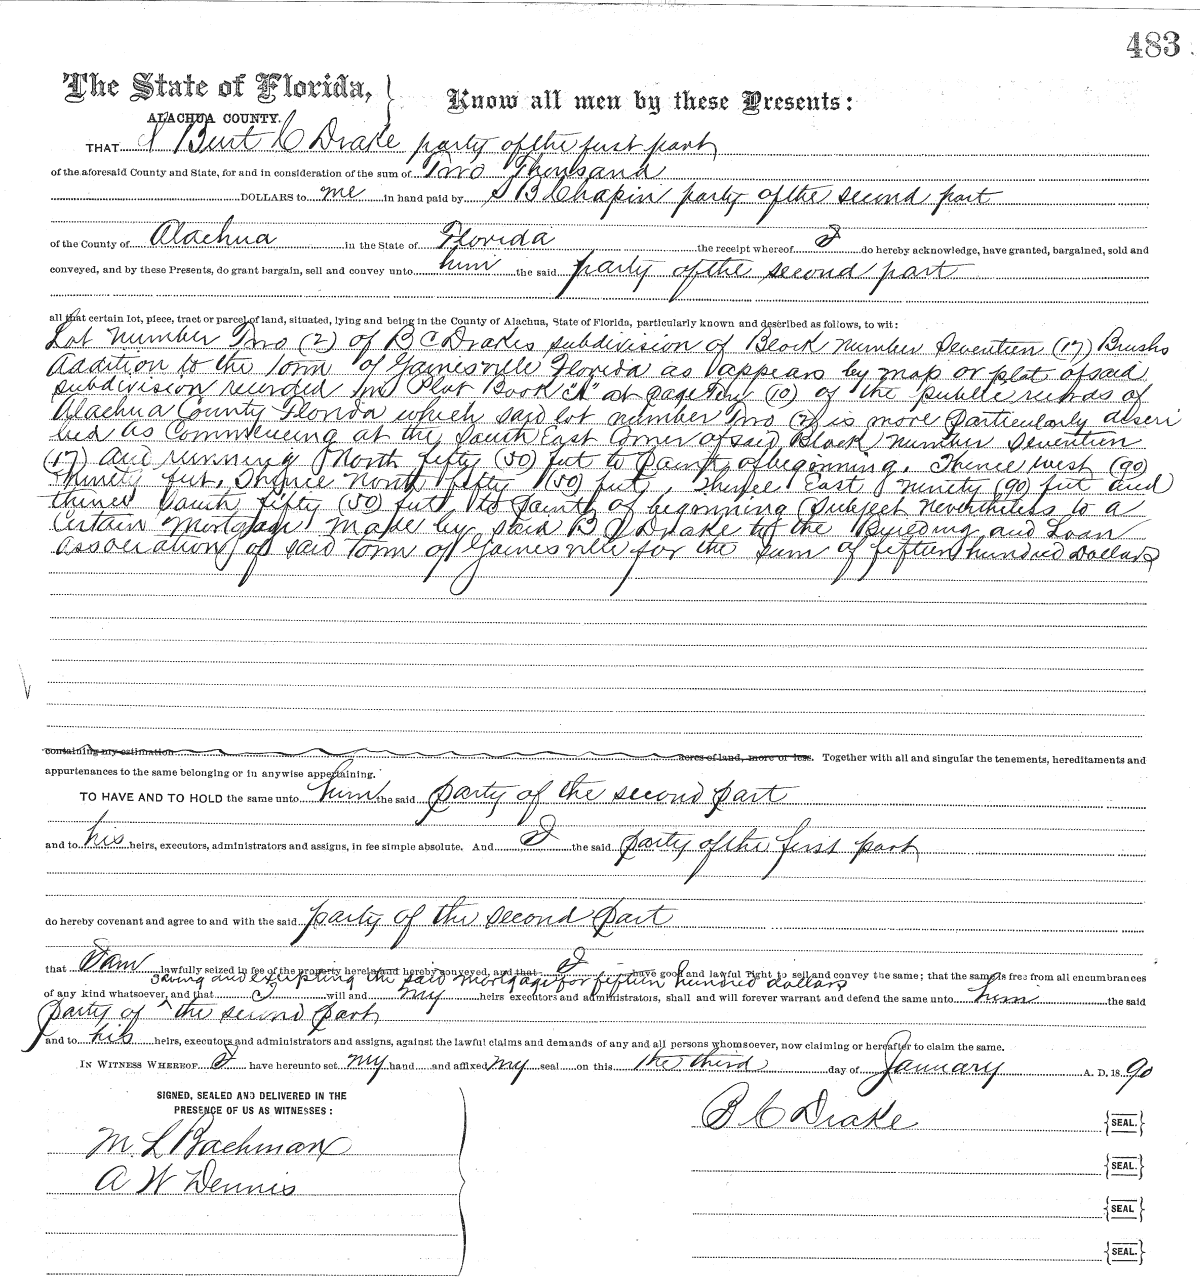 483
The State of Florida, } Know all men by these Presents:
ALACHUA COUNTY.
THAT I Burt C Drake party of the first part
of the aforesaid County and State, for and in consideration of the sum of Two Thousand
DOLLARS to me in hand paid by S B Chapin party of the second part
of the County of Alachua in the State of Florida the receipt whereof I do hereby acknowledge, have granted, bargained, sold and
conveyed, and by these Presents, do grant bargain, sell and convey unto him the said party of the second part
all that certain lot, piece, tract or parcel of land, situated, lying and being in the County of Alachua, State of Florida, particularly known and described as follows, to wit:
Lot Number Two (2) of B C Drakes subdivision of Block Number Seventeen (17) Brushs
Addition to the Town of Gainesville Florida as appears by map or plat of said
subdivision recorded in Plat Book "A" at page Ten (10) of the public records of
Alachua County Florida which said lot number Two (2) is more particularly descri
bed as Commencing at the South East Corner of said Block number Seventeen
(17) and running North fifty (50) feet to point of beginning. Thence west (90)
Ninety feet, Thence North fifty (50) feet, Thence East Ninety (90) feet and
thence South fifty (50) feet to point of beginning Subject nevertheless to a
Certain Mortgage made by said B C Drake to the Building and Loan
Association of said Town of Gainesville for the sum of fifteen hundred dollars
containing my estimation acres of land, more or less. Together with all and singular the tenements, hereditaments and
appurtenances to the same belonging or in anywise appertaining.
TO HAVE AND TO HOLD the same unto him the said party of the second part
and to his heirs, executors, administrators and assigns, in fee simple absolute. And I the said party of the first part
do hereby covenant and agree to and with the said party of the second part
that I am lawfully seized in fee of the property herein and hereby conveyed, and that I have good and lawful right to sell and convey the same; that the same is free from all encumbrances
saving and excepting the said mortgage for fifteen hundred dollars
of any kind whatsoever, and that I will and my heirs executors and administrators, shall and will forever warrant and defend the same unto him the said
party of the second part
and to his heirs, executors and administrators and assigns, against the lawful claims and demands of any and all persons whomsoever, now claiming or hereafter to claim the same.
IN WITNESS WHEREOF I have hereunto set my hand and affixed my seal on this the third day of January A. D. 1890
SIGNED, SEALED AND DELIVERED IN THE
PRESENCE OF US AS WITNESSES:
M L Bachman
A W Dennis
B C Drake {SEAL.}
{SEAL.}
{SEAL}
{SEAL.}